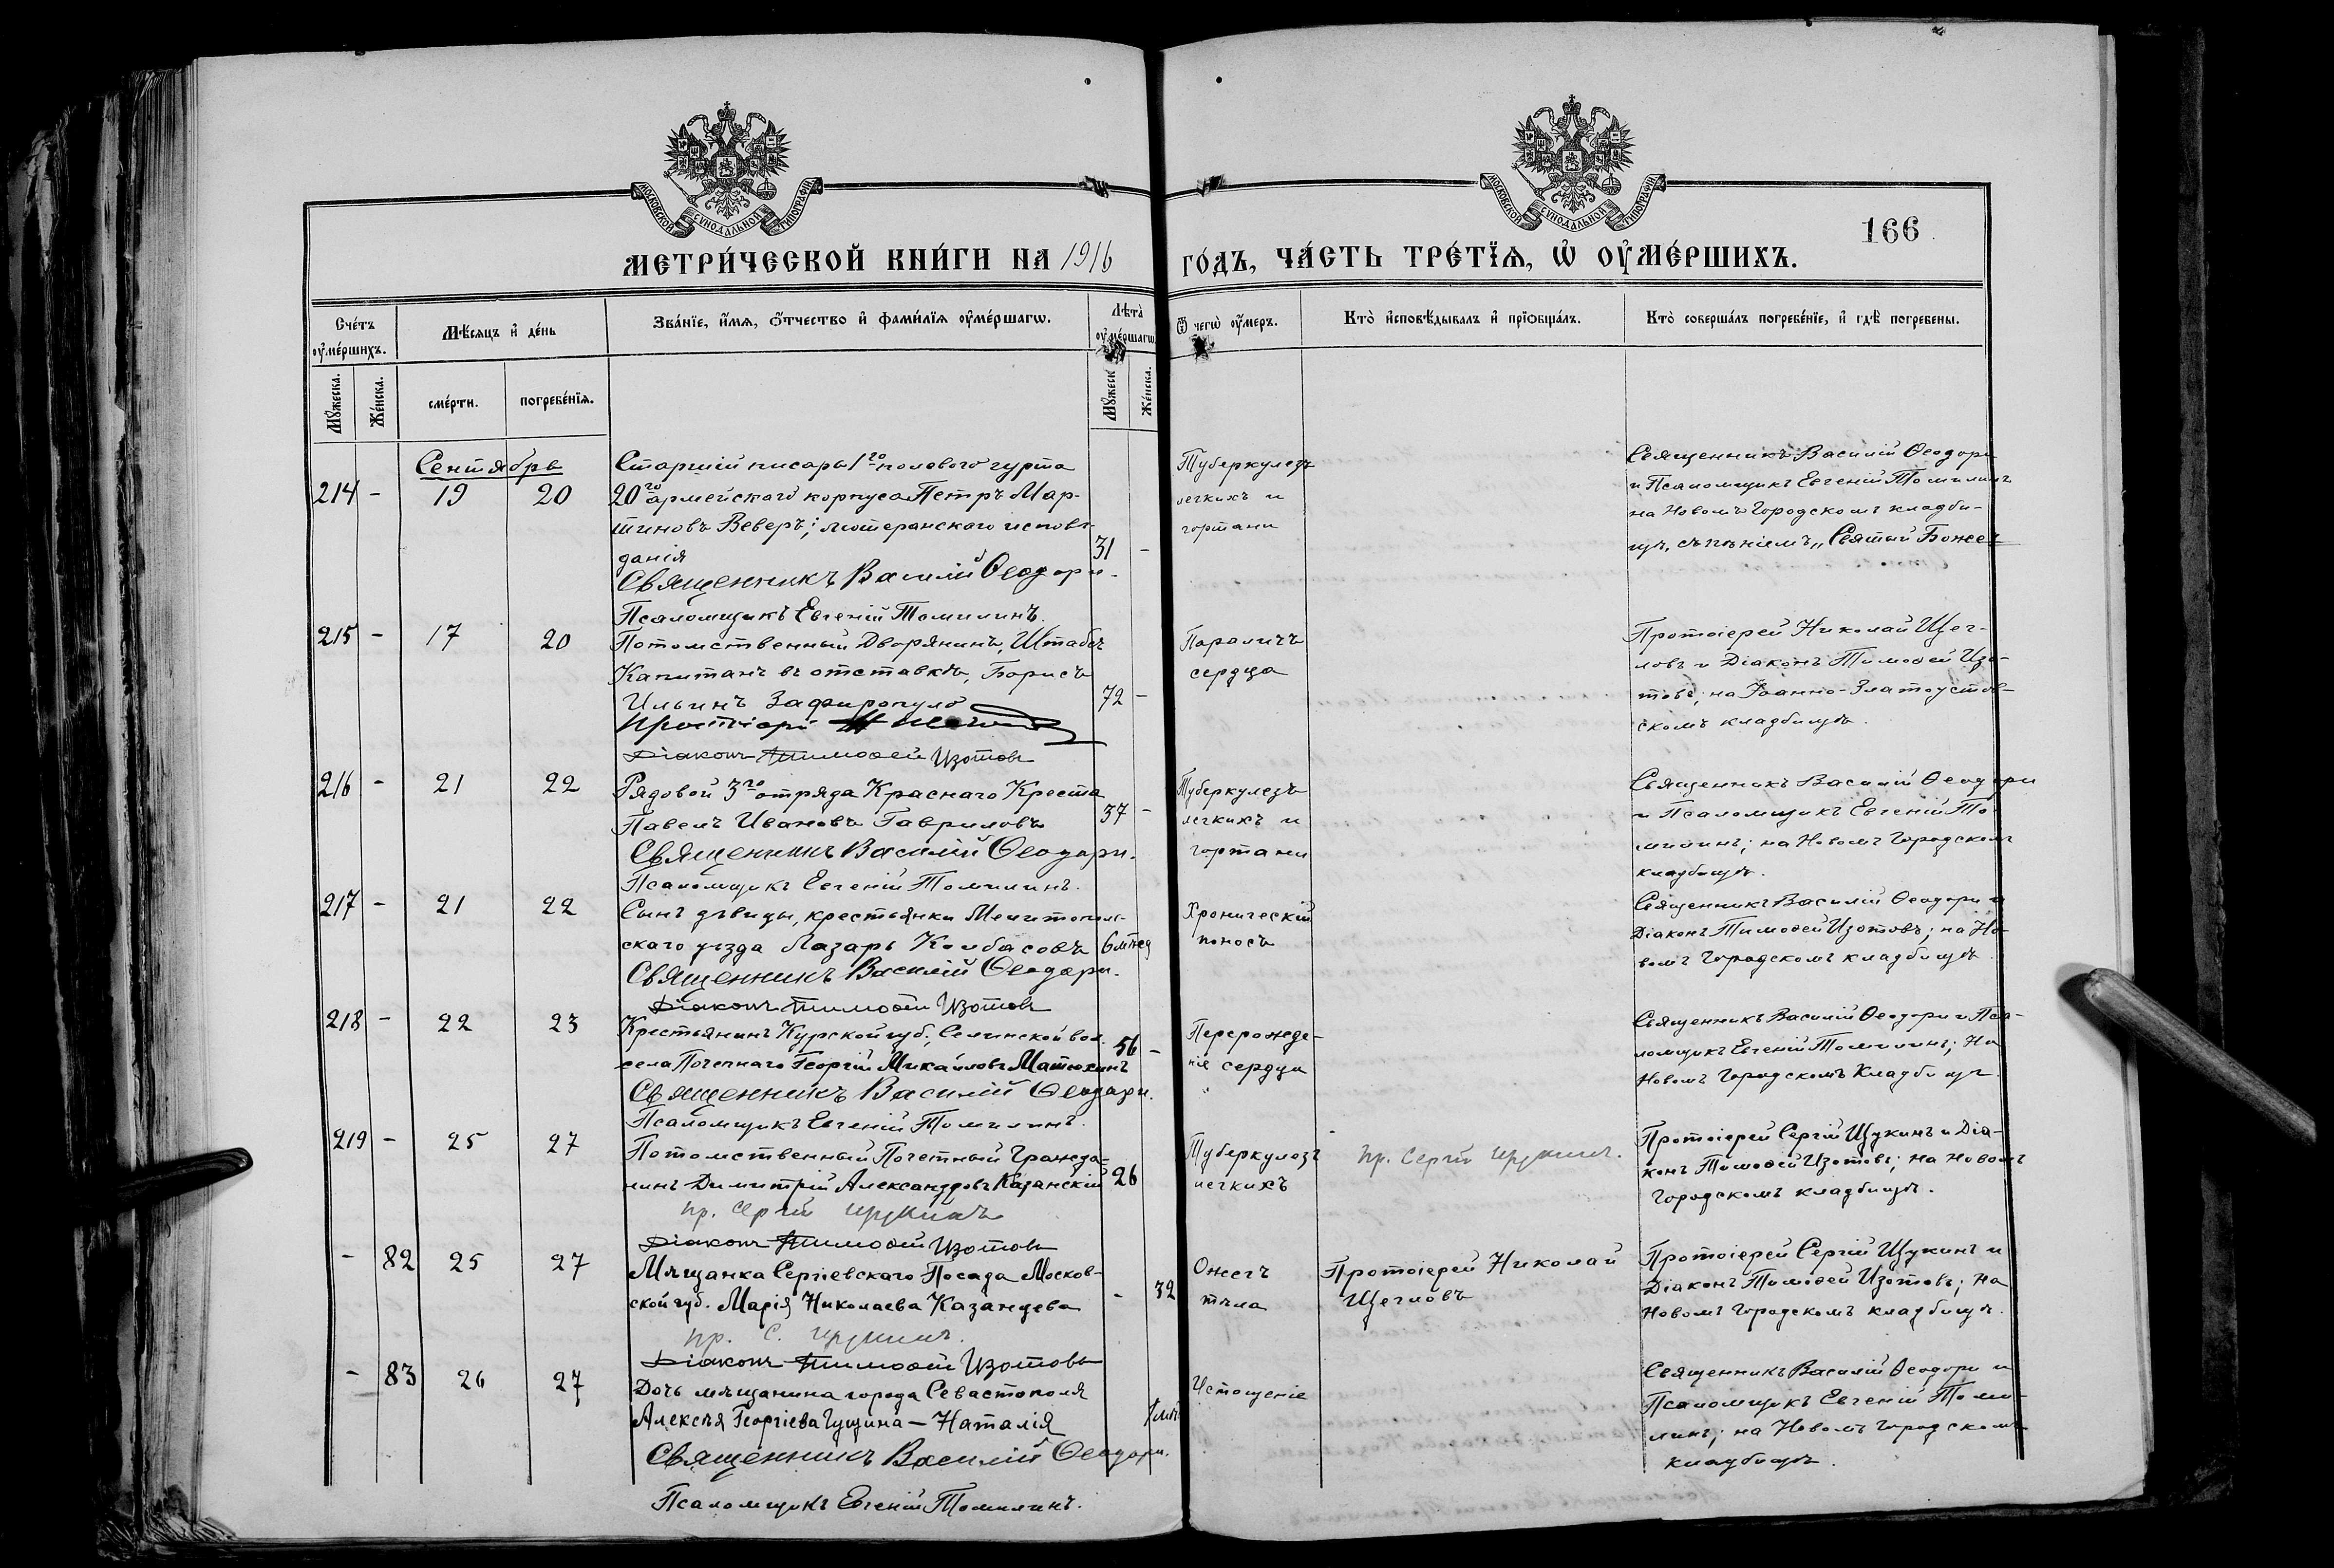 МОСКОВСКОЙ СУНОДАЛЬНОЙ ТИПОГРАФІИ
МОСКОВСКОЙ СУНОДАЛЬНОЙ ТИПОГРАФІИ
166
МЕТРИ́ЧЕСКОЙ КНИ́ГИ НА 1916 ГО́ДЪ, ЧА́СТЬ ТРЕ́ТЇѦ, Ѡ҆ ОУ҆МЕ́РШИХЪ.
Сче́тъ оу҆ме́ршихъ.
Мѣ́сѧцъ и҆ де́нь
Зва́нїе, и҆́мѧ, ѻ҆́тчество и҆ фами́лїѧ оу҆ме́ршагѡ.
Лѣ́та оу҆ме́ршагѡ
Ѿ чегѡ̀ оу҆́меръ.
Кто̀ и҆сповѣ́дывалъ и҆ прїѡбща́лъ.
Кто̀ соверша́лъ погребе́нїе, и҆ гдѣ̀ погребены.
Мꙋ́жеска.
Же́нска.
сме́рти.
погребе́нїѧ.
Мꙋ́жеск
Же́нска.
Сентябрь
214 - 19 20
Старшій писарь 1го полового гурта
20го армейскаго корпуса Петръ Мар-
тиновъ Веверъ; лютеранскаго исповѣ-
данія
31 -
Священникъ Василій Ѳеодори.
Псаломщикъ Евгеній Томилинъ.
Туберкулезъ
легкихъ и
гортани
Священникъ Василій Ѳеодори
и Псаломщикъ Евгеній Томилинъ
на Новомъ Городскомъ кладби-
щѣ, съ пѣніемъ „Святый Боже"
215 - 17 20
Потомственный Дворянинъ, Штабсъ
Капитанъ въ отставкѣ, Борисъ
Ильинъ Зафиропуло
72 -
Протоіерей Н Щегловъ
Діаконъ Тимоѳей Изотовъ
Параличъ
сердца
Протоіерей Николай Щег-
ловъ и Діаконъ Тимоѳей Изо-
товъ; на Іоанно-Златоустов-
скомъ кладбищѣ.
216 - 21 22
Рядовой 3го отряда Краснаго Креста
Павелъ Ивановъ Гавриловъ
37 -
Священникъ Василій Ѳеодори.
Псаломщикъ Евгеній Томилинъ.
Туберкулезъ
легкихъ и
гортани
Священникъ Василій Ѳеодори
и Псаломщикъ Евгеній То-
милинъ; на Новомъ Городскомъ
кладбищѣ.
217 - 21 22
Сынъ дѣвицы, крестьянки Мелитополь-
скаго уѣзда Лазарь Колбасовъ
6 мѣс
Священникъ Василій Ѳеодори.
Діаконъ Тимоѳей Изотовъ
Хроническій
поносъ
Священникъ Василій Ѳеодори и
Діаконъ Тимоѳей Изотовъ; на Но-
вомъ Городскомъ кладбищѣ.
218 - 22 23
Крестьянинъ Курской губ., Селинской вол.
села Почепнаго Георгій Михайловъ Матюхинъ
56 -
Священникъ Василій Ѳеодори.
Псаломщикъ Евгеній Томилинъ.
Перерожде-
ніе сердца
Священникъ Василій Ѳеодори и Пса-
ломщикъ Евгеній Томилинъ; На
Новомъ Городскомъ Кладбищѣ.
219 - 25 27
Потомственный Почетный Гражда-
нинъ Димитрій Александровъ Казанскій
26
пр. Сергій Щукинъ
Діаконъ Тимоѳей Изотовъ
Туберкулозъ
легкихъ
пр. Сергій Щукинъ.
Протоіерей Сергій Щукинъ и Діа-
конъ Тимоѳей Изотовъ; на Новомъ
Городскомъ кладбищѣ.
- 82 25 27
Мѣщанка Сергіевскаго Посада Москов-
ской губ. Марія Николаева Казанцева
- 32
пр. С. Щукинъ.
Діаконъ Тимоѳей Изотовъ
Ожегъ
тѣла
Протоіерей Николай
Щегловъ
Протоіерей Сергій Щукинъ и
Діаконъ Тимоѳей Изотовъ; на
Новомъ Городскомъ кладбищѣ.
- 83 26 27
Дочь мѣщанина города Севастополя
Алексѣя Георгіева Гущина — Наталія
Священникъ Василій Ѳеодори.
Псаломщикъ Евгеній Томилинъ.
Истощеніе
Священникъ Василій Ѳеодори и
Псаломщикъ Евгеній Томи-
линъ; на Новомъ Городскомъ
кладбищѣ.